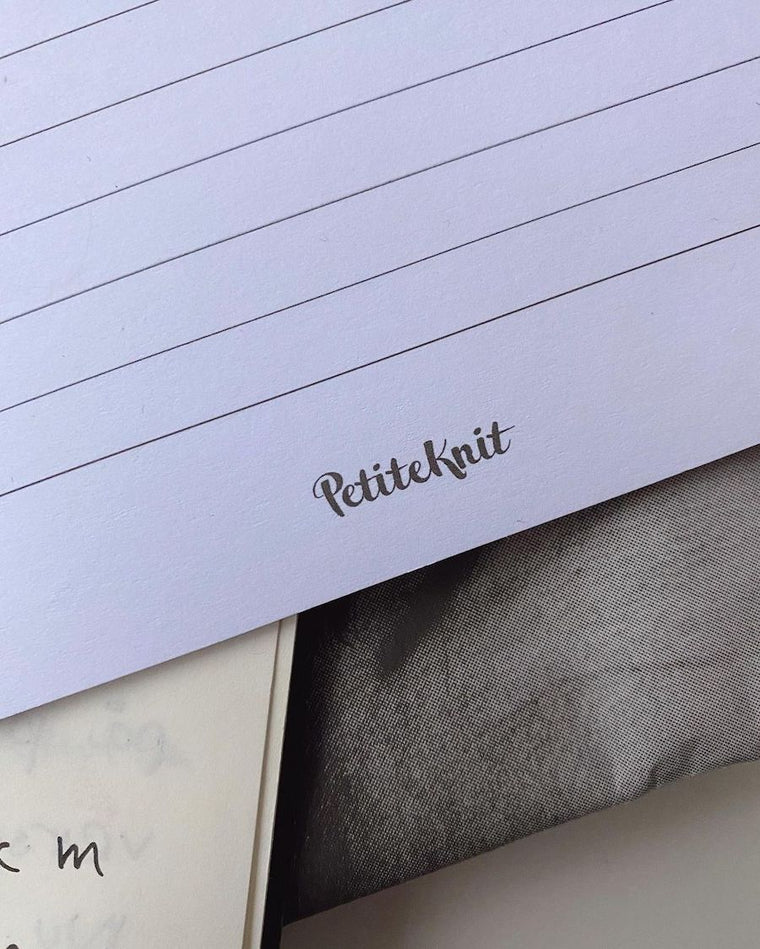 PetiteKnit
m